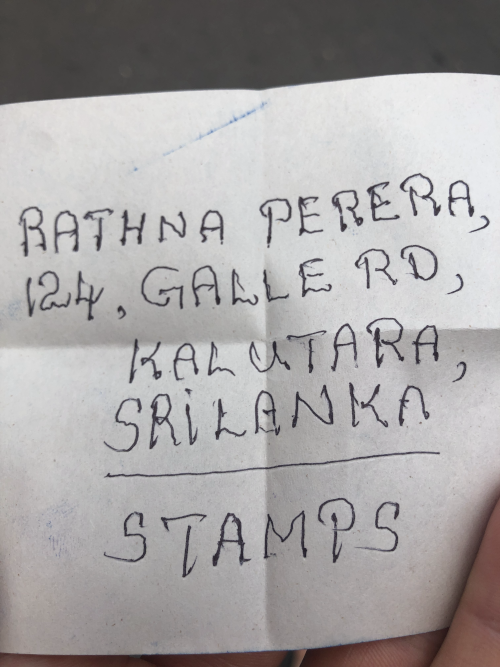 RATHNA PERERA,
124, GALLE RD,
KALUTARA,
SRiLANKA
STAMPS